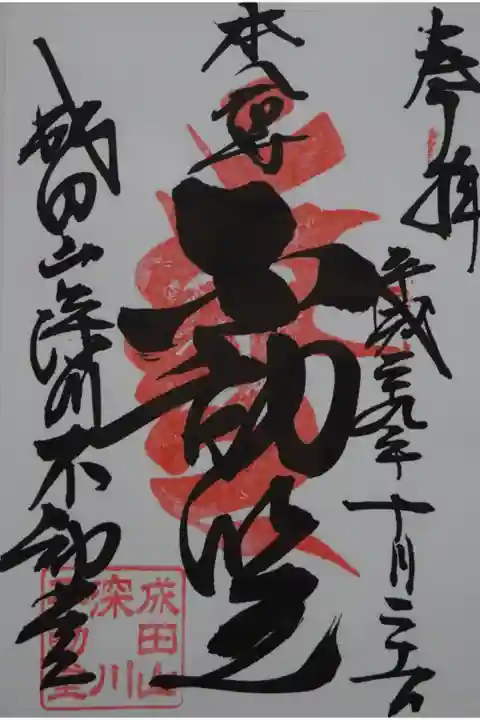 奉拝
平成二十九年十月二十六日
本尊
不動明王
成田山深川不動堂
成田山
深川
不動堂